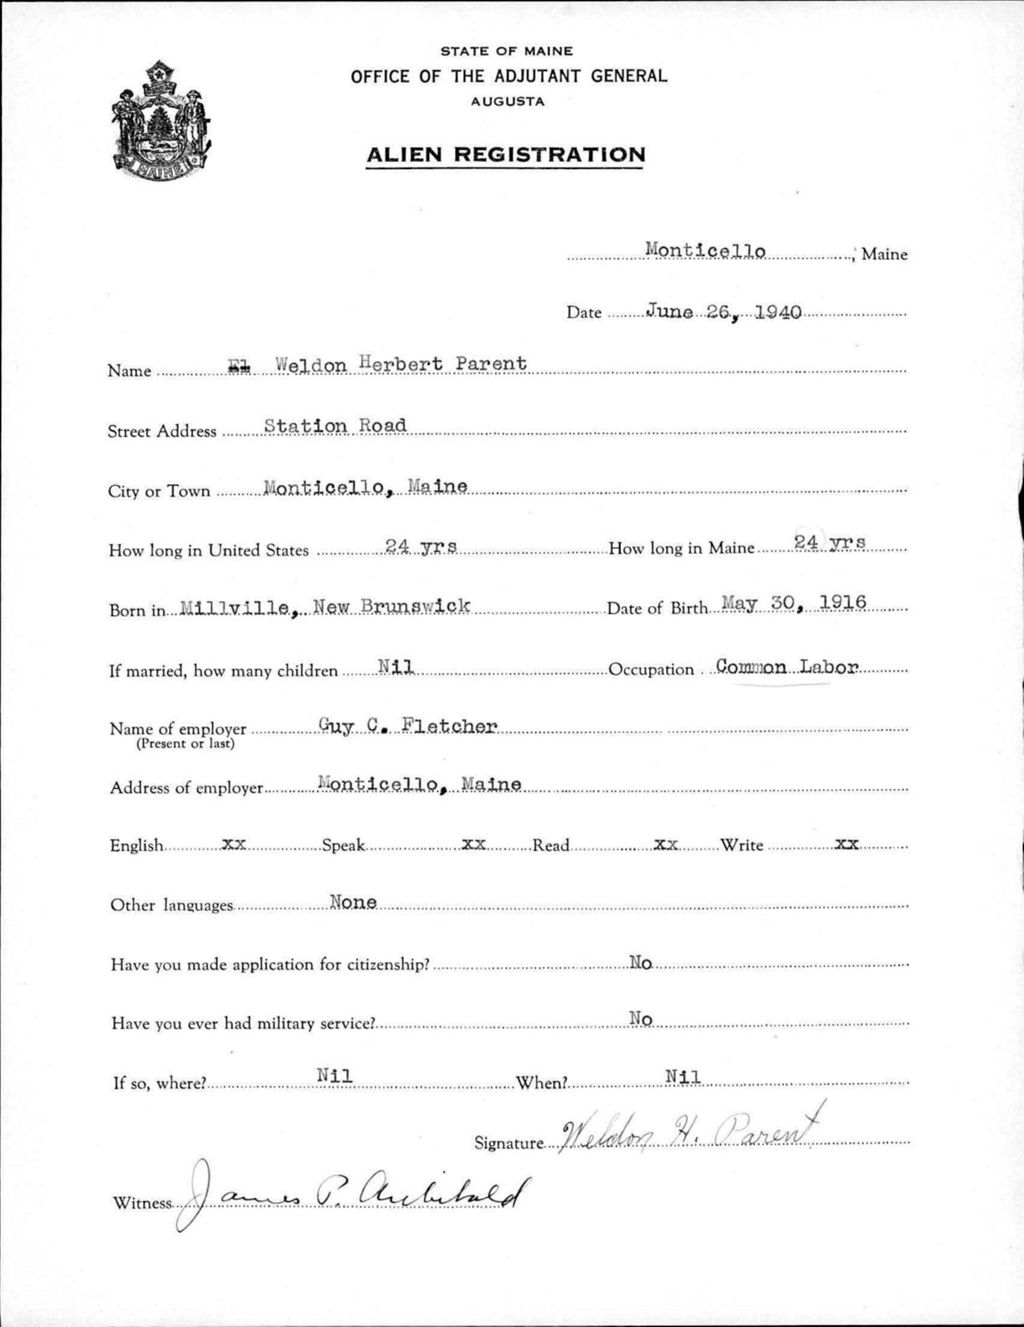 STATE OF MAINE
OFFICE OF THE ADJUTANT GENERAL
AUGUSTA
ALIEN REGISTRATION
MAINE
Monticello, Maine
Date June 26, 1940
Name Weldon Herbert Parent
Street Address Station Road
City or Town Monticello, Maine
How long in United States 24 yrs How long in Maine 24 yrs
Born in Millville, New Brunswick Date of Birth May 30, 1916
If married, how many children Nil Occupation Common Labor
Name of employer Guy C. Fletcher
(Present or last)
Address of employer Monticello, Maine
English xx Speak xx Read xx Write xx
Other languages None
Have you made application for citizenship? No
Have you ever had military service? No
If so, where? Nil When? Nil
Signature Weldon H. Parent
Witness James P. Archibald